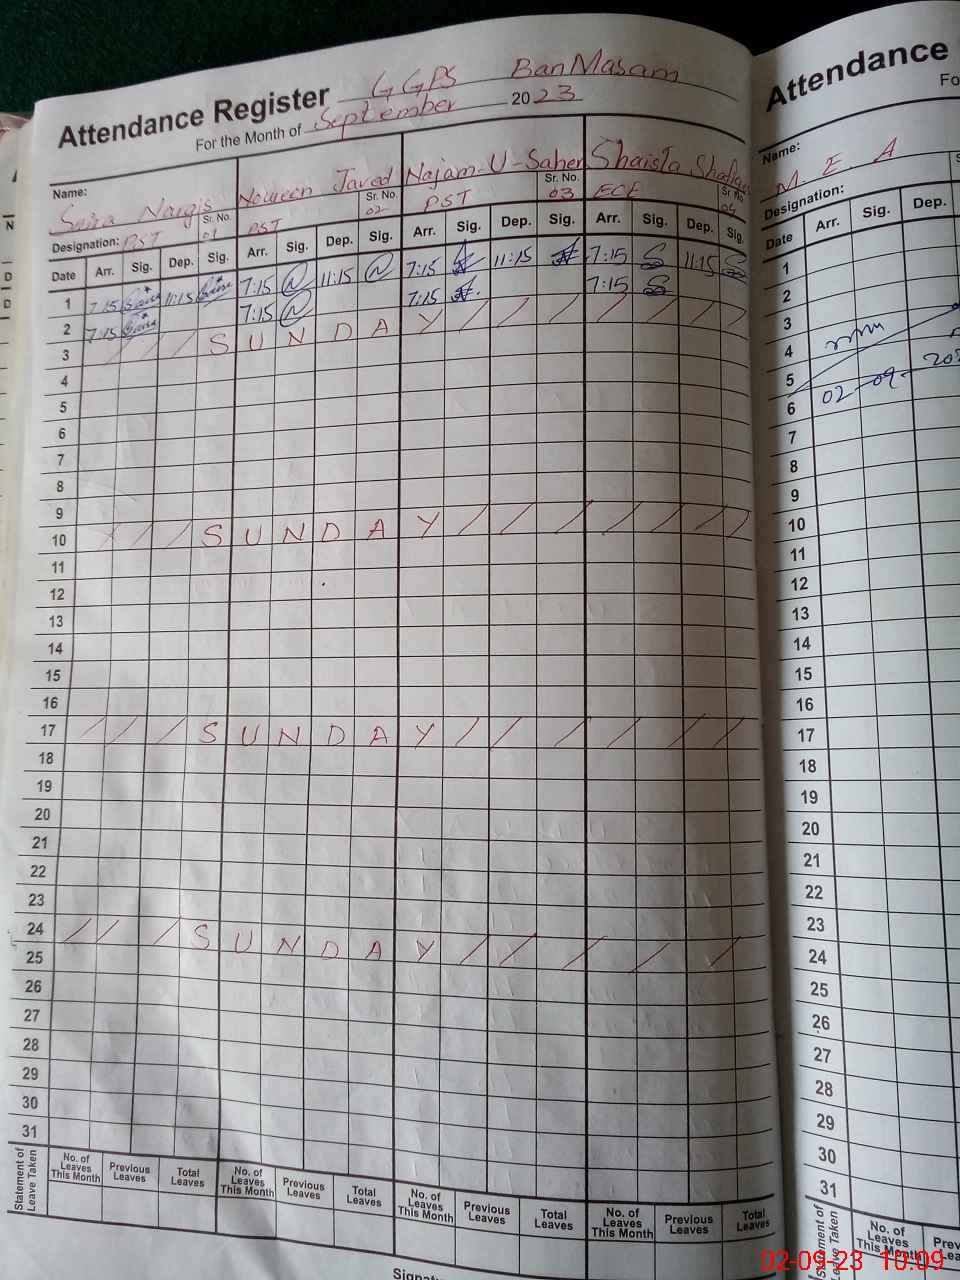 Attendance Register GGPS BanMasam
For the Month of September 2023
Name: Saira Nargis Noureen Javed Najam-U-Saher Shaista
Sr. No. 01 Sr. No. 02 Sr. No. 03 Sr. No. 04
Designation: PST PST PST ECE
Date Arr. Sig. Dep. Sig. Arr. Sig. Dep. Sig. Arr. Sig. Dep. Sig. Arr. Sig. Dep. Sig.
1 7:15 11:15 7:15 11:15 7:15 11:15 7:15 11:15
2 7:15 7:15 7:15 7:15
3 / / / S U N D A Y / / / / / / /
4
5
6
7
8
9
10 / / / S U N D A Y / / / / / / /
11
12
13
14
15
16
17 / / / S U N D A Y / / / / / / /
18
19
20
21
22
23
24 / / / S U N D A Y / / / / /
25
26
27
28
29
30
31
Statement of Leave Taken
No. of Leaves This Month Previous Leaves Total Leaves No. of Leaves This Month Previous Leaves Total Leaves No. of Leaves This Month Previous Leaves Total Leaves No. of Leaves This Month Previous Leaves Total Leaves
Attendance
Fo
Name: M E A
Designation:
Date Arr. Sig. Dep.
1
2
3
4
5
6 02-09-202
7
8
9
10
11
12
13
14
15
16
17
18
19
20
21
22
23
24
25
26
27
28
29
30
31
Statement of Leave Taken
No. of Leaves This Month Prev Leav
02-09-23 10:09